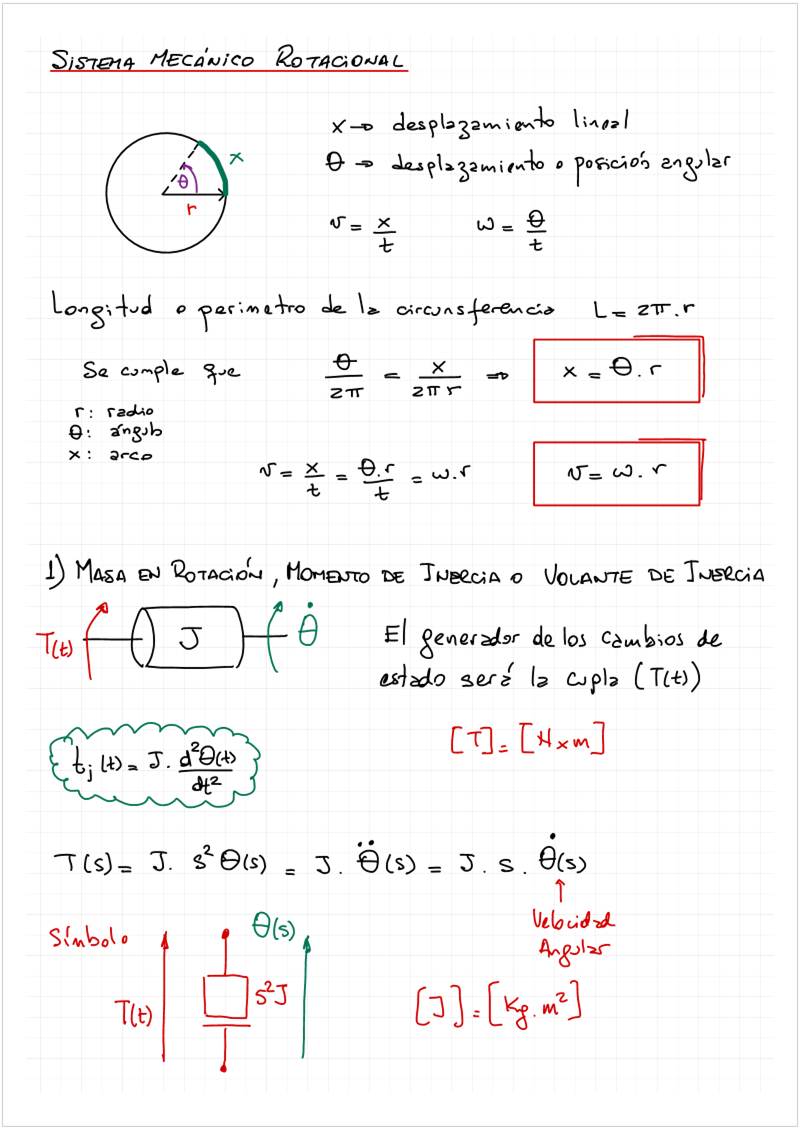 SISTEMA MECÁNICO ROTACIONAL
x → desplazamiento lineal
θ → desplazamiento o posición angular
x
θ
r
v = x/t    ω = θ/t
Longitud o perimetro de la circunsferencia    L = 2π.r
Se cumple que    θ/2π = x/2πr ⇒ x = θ.r
r: radio
θ: ángulo
x: arco
v = x/t = θ.r/t = ω.r    v = ω.r
1) MASA EN ROTACIÓN, MOMENTO DE INERCIA O VOLANTE DE INERCIA
T(t)    J    θ̇
El generador de los cambios de
estado será la cupla (T(t))
[T] = [N x m]
tj(t) = J. d²θ(t)/dt²
T(s) = J. s² θ(s) = J. θ̈(s) = J. s. θ̇(s)
Velocidad
Angular
Símbolo    θ(s)
T(t)    s²J
[J] = [Kg.m²]